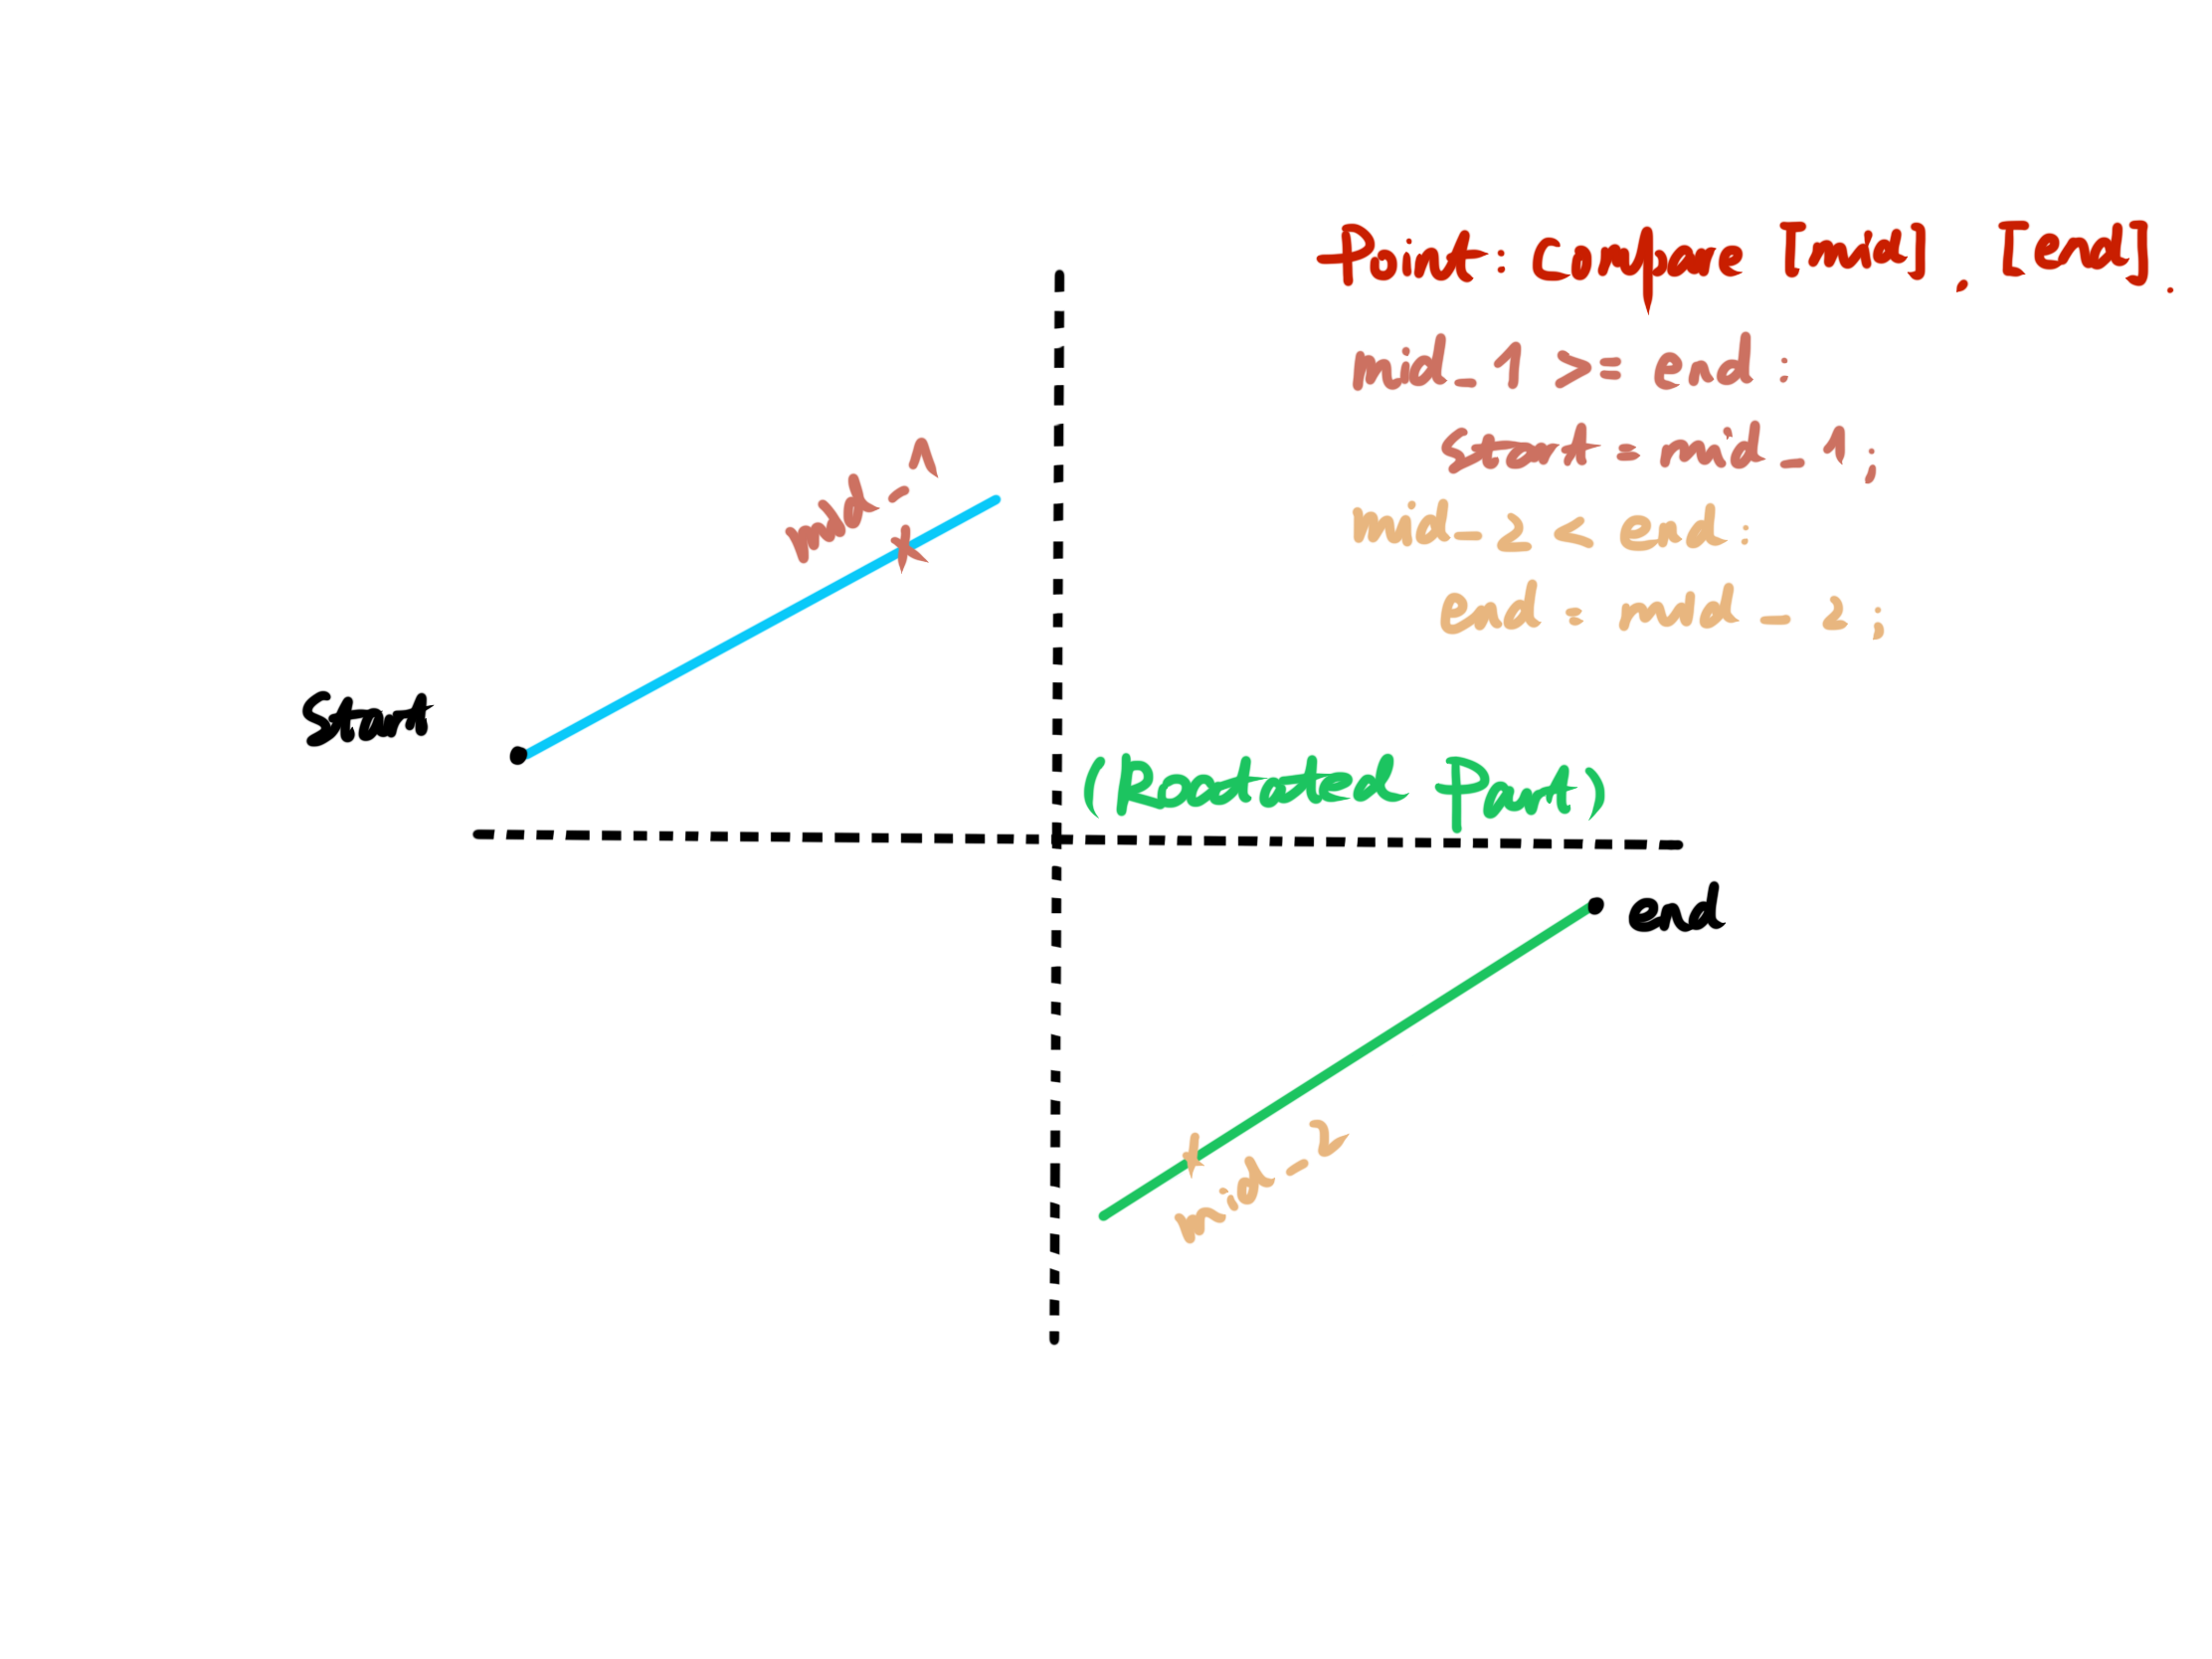 Point: compare [mid], [end].
mid_1 >= end:
start = mid_1;
mid_2 < end:
end = mid_2;
mid_1
start
(Roatated Part)
end
mid_2